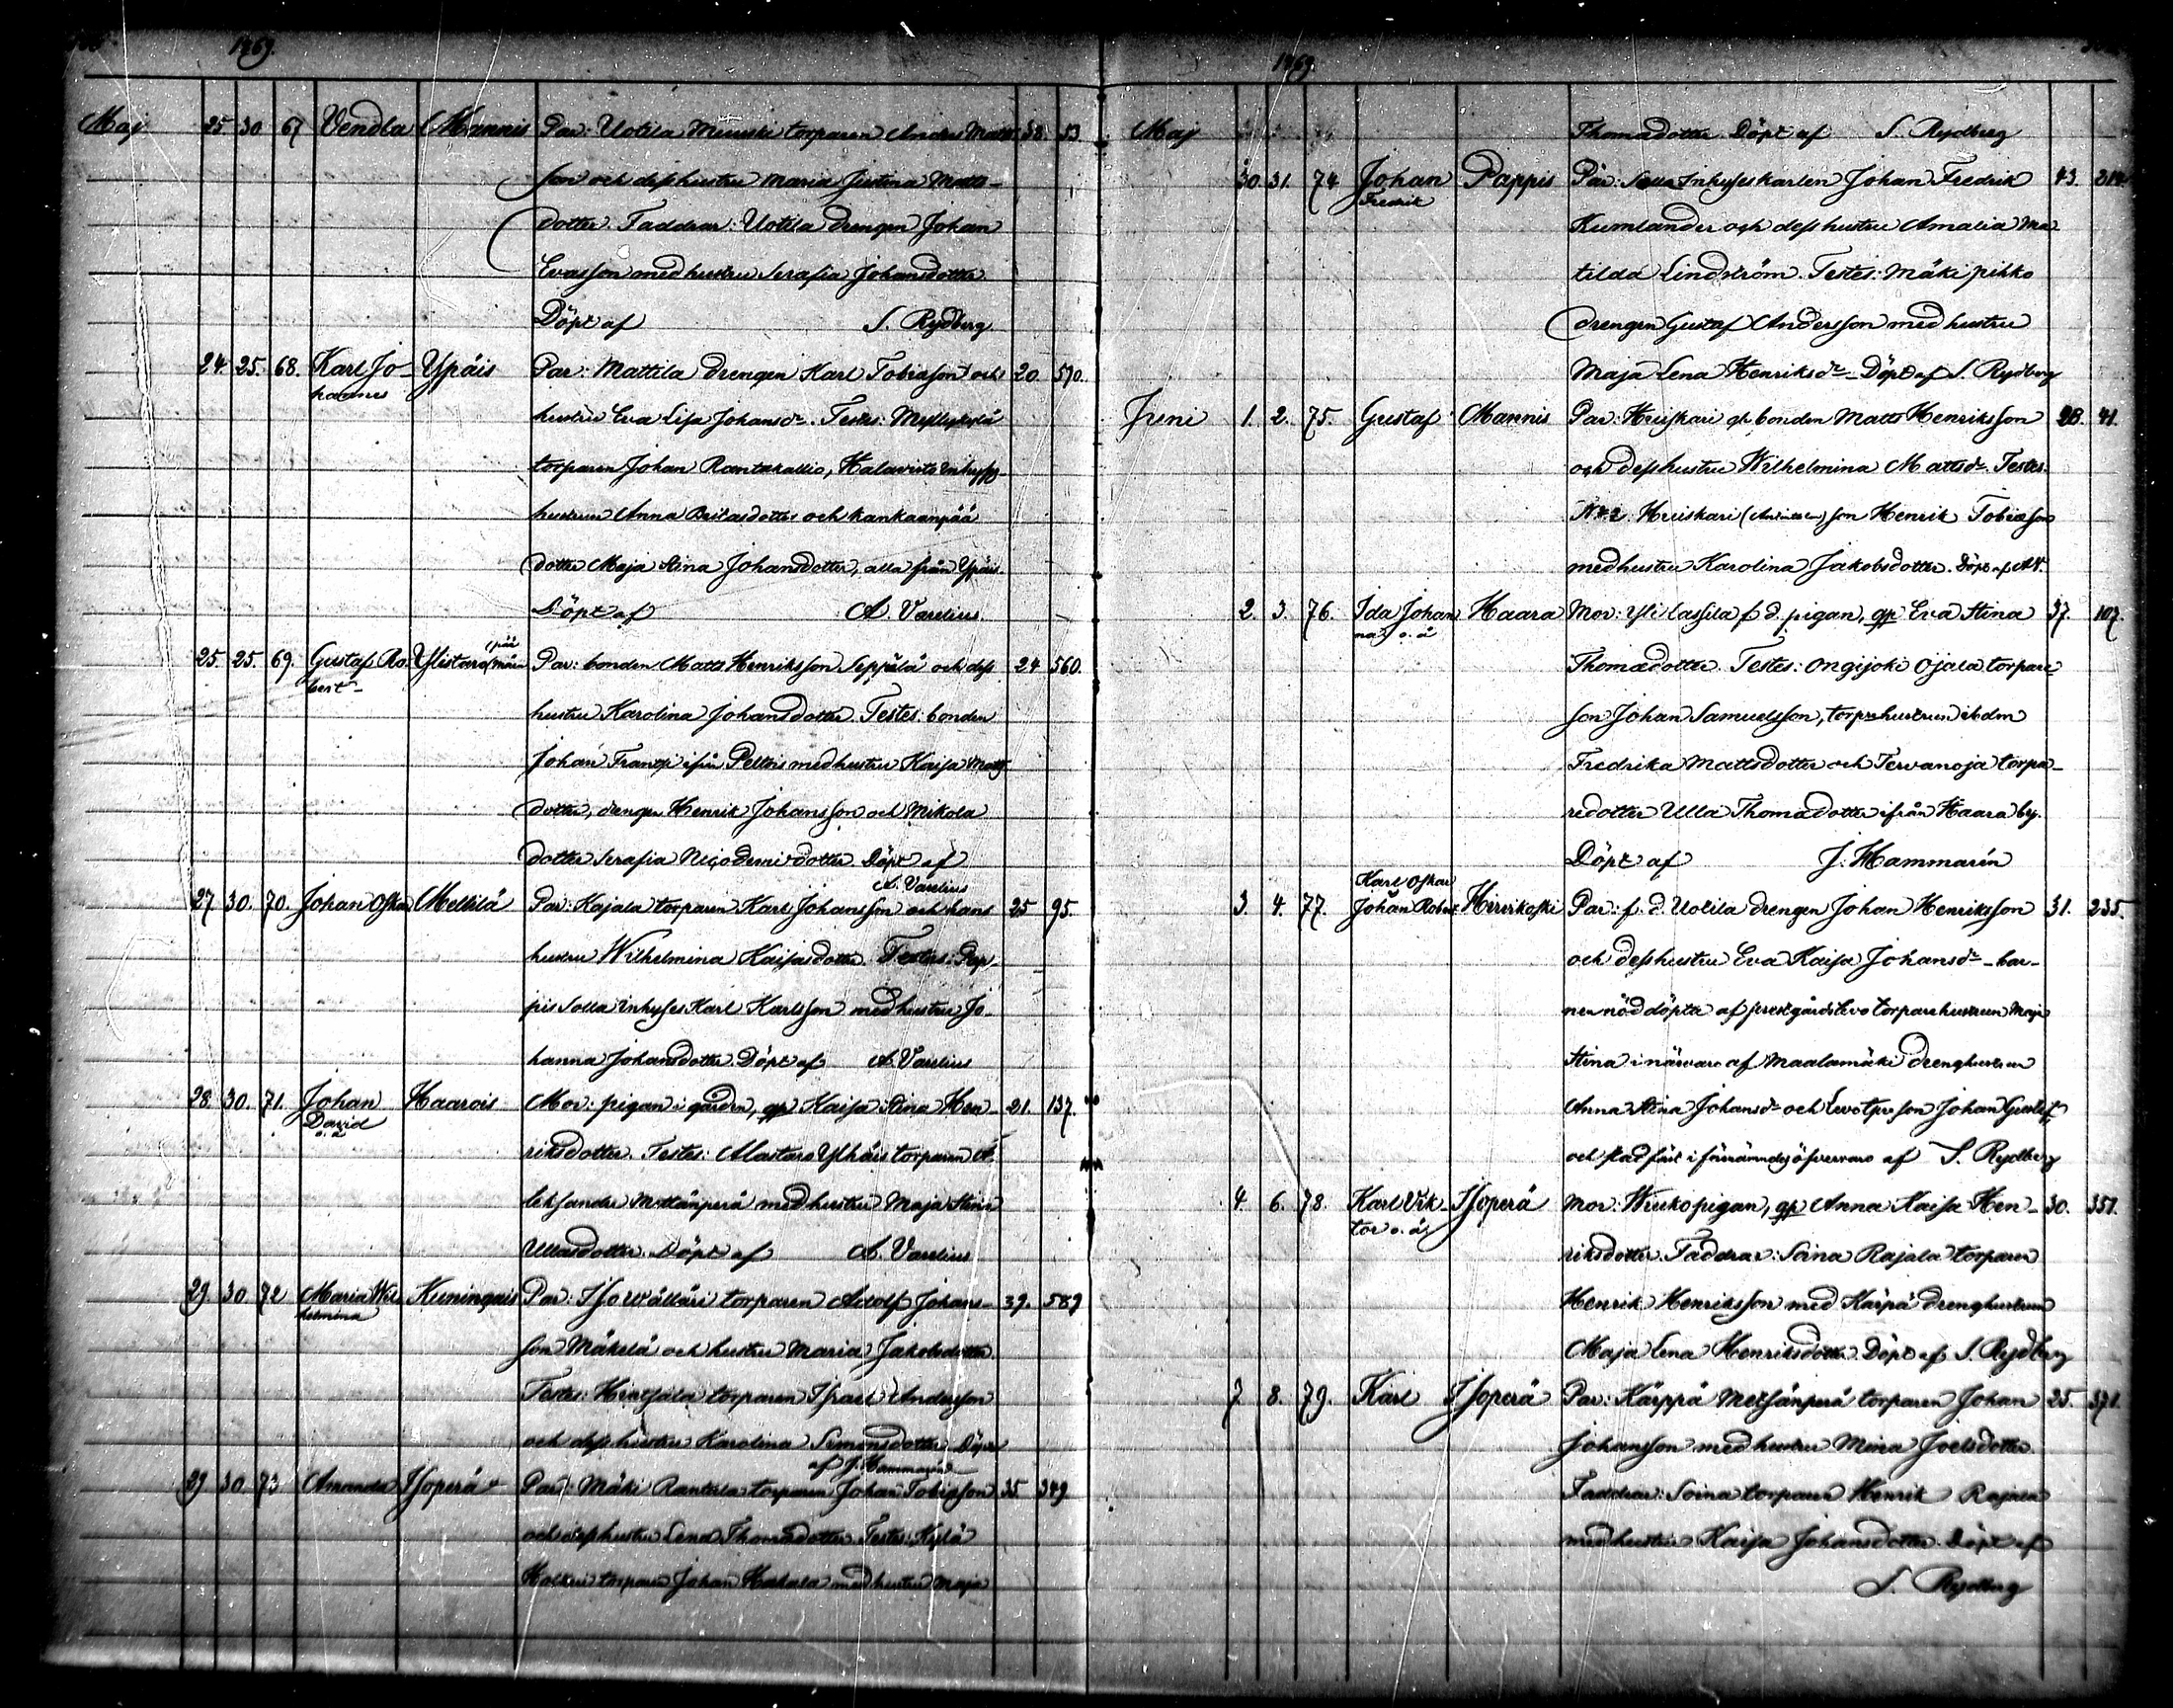 1869.
Maj 25 30 67 Vendla Mannis Par: Uotila Mieuski torparen Anders Matts 38. 53
son och dess hustru Maria Justina Matts-
dotter. Faddrar: Uotila drengen Johan
Evasson med hustru Serafia Johansdotter
Döpt af S. Rydberg.
24. 25. 68. Karl Jo- Ypäis Par: Mattila drengen Karl Tobiasson och 20. 570.
hannes
hustru Eva Lisa Johansdr. Testes: Myllykylä
torparen Johan Rantakallio, Halavirta inhyses
hustrun Anna Britasdotter och Kankaanpää
dotter Maja Stina Johansdotter, alla från Ypäis.
Döpt af A. Varelius.
25. 25. 69. Gustaf Ro- Ylistaro Par: bonden Matts Henriksson Seppälä och dess 24 560.
bert
hustru Karolina Johansdotter. Testes: bonden
Johan Frantsi ifrån Peltois med hustru Kaisa Matts
dotter, drengen Henrik Johansson och Mikola
dotter Serafia Nicodemidotter. Döpt af
A. Varelius
27. 30. 70. Johan Oskar Mellilä Par: Kajala torparen Karl Johansson och hans 25 95.
hustru Wilhelmina Kaisasdotter. Testes: Pap-
pis Solla inhyses Karl Karlsson med hustru Jo
hanna Johansdotter. Döpt af A. Varelius
28. 30. 71. Johan Haarois Mor: pigan i gården, gp Kaisa Stina Hen- 21. 137.
David
o. ä
riksdotter. Testes: Alastaro Ylhäis torparen A-
leksander Mettänperä med hustru Maja Stina
Ullasdotter. Döpt af A. Varelius
29 30 72 Maria Wil Kuninqais Par: Iso Wälläri torparen Adolf Johans- 39. 589
helmina
son Mäkelä och hustru Maria Jakobsdotter.
Testes: Hirvsjala torparen Israel Andersson
och dess hustru Karolina Simonsdotter. Döpt
af J. Hammarén
29 30 73 Amanda Isoperä Par: Mäki Rantala torparen Johan Tobiasson 35 349
och dess hustru Lena Thomasdotter. Testes: Kylä
Holkeri torparen Johan Hakala med hustru Maja
1869.
Maj Thomasdotter Döpt af S. Rydberg
30. 31. 74 Johan Pappis Par: Solla Inhyseskarlen Johan Fredrik 43. 214
Fredrik
Kumlander och dess hustru Amalia Ma
tilda Lindström. Testes: Mäkipihko
drengen Gustaf Andersson med hustru
Maja Lena Henriksdr. Döpt af S. Rydberg
Juni 1. 2. 75. Gustaf Mannis Par: Huiskari bonden Matts Henriksson 28. 41.
och dess hustru Wilhelmina Mattsdr. Testes:
No 2. Huiskari son Henrik Tobiasson
med hustru Karolina Jakobsdotter. Döpt af A.V.
2. 3. 76. Ida Johan Haara Mor: Yli Lassila f.d. pigan, gp Eva Stina 37. 107.
na o. ä
Thomasdotter. Testes: Ongijoki Ojala torpare
son Johan Samuelsson, torpr hustrun ibdm
Fredrika Mattsdotter och Tervanoja torpa-
redotter Ulla Thomasdotter ifrån Haara by.
Döpt af J. Hammarén
Karl Oskar
3. 4. 77. Johan Robert Hirvikoski Par: f. d. Uotila drengen Johan Henriksson 31. 235.
och dess hustru Eva Kaisa Johansdr. bar-
nen nöddöpta af prestgårds Levo torparehustrun Maja
Stina i närvaro af Maalamäki drenghustrun
Anna Stina Johansdr och Levo tprs son Johan Gustaf,
och stadfäst i förenämndes öfvervaro af S. Rydberg
4. 6. 78. Karl Vik- Isoperä Mor: Wiuko pigan, gp Anna Kaisa Hen- 30. 351.
tor o. ä
riksdotter. Faddrar: Soina Rajala torparen
Henrik Henriksson med Kärpä drenghustrun
Maja Lena Henriksdotter. Döpt af S. Rydberg
7. 8. 79. Karl Isoperä Par: Käppä Metsänperä torparen Johan 25. 371.
Johansson med hustru Mina Joelsdotter.
Faddrar: Soina torparen Henrik Rajala
med hustru Kaisa Johansdotter. Döpt af
S. Rydberg